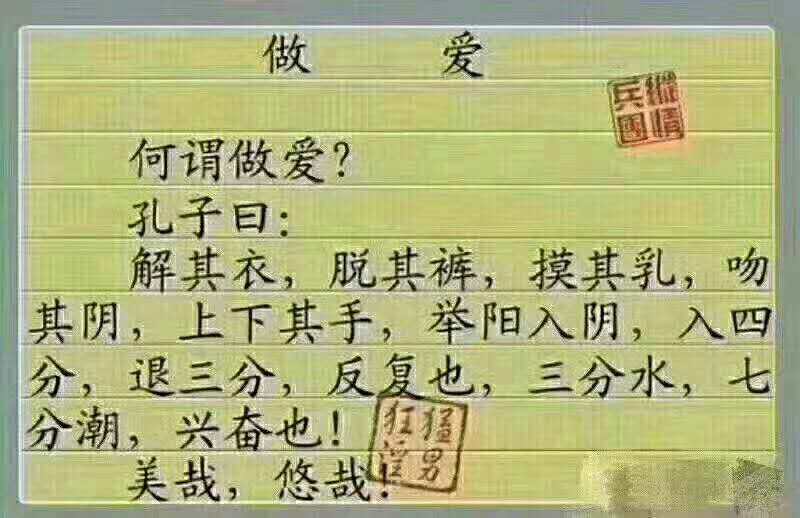 做 爱
纵情
兵团
何谓做爱?
孔子曰:
解其衣,脱其裤,摸其乳,吻
其阴,上下其手,举阳入阴,入四
分,退三分,反复也,三分水,七
分潮,兴奋也!
美哉,悠哉!
猛男
狂淫